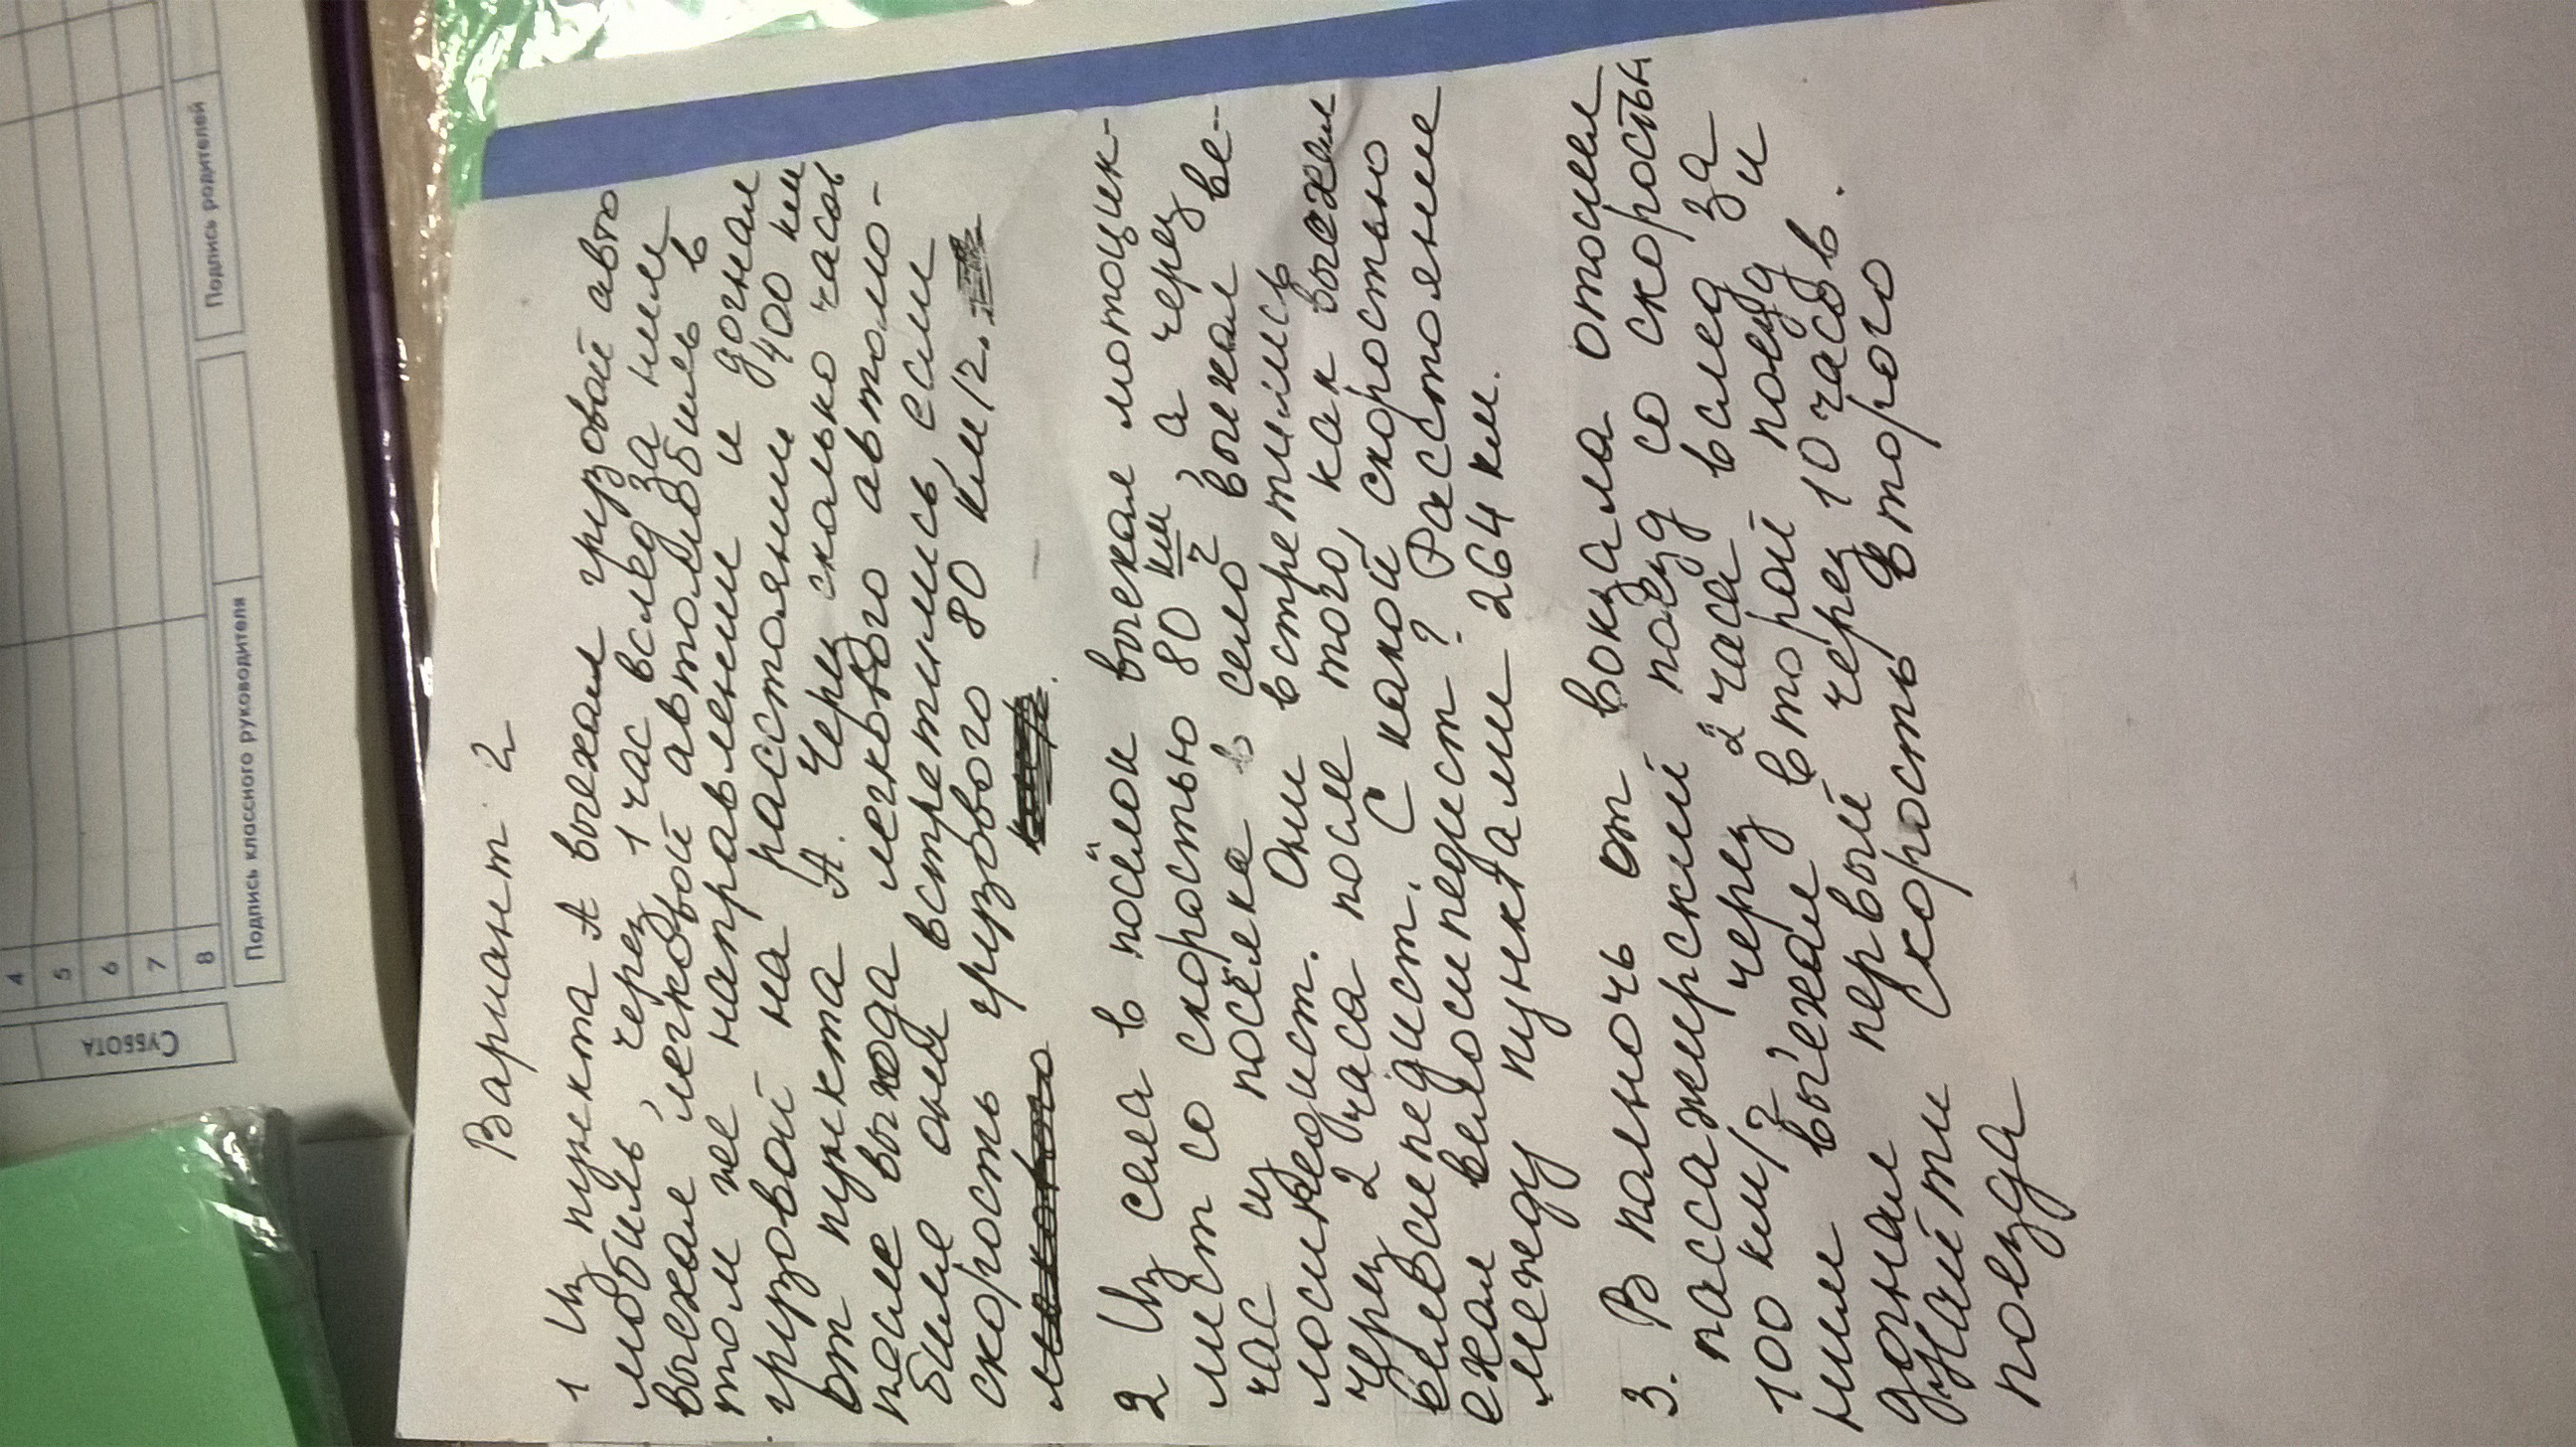 Вариант 2
1 Из пункта А выехал грузовой авто
мобиль, через 1 час вслед за ним
выехал легковой автомобиль в
том же направлении и догнал
грузовой на расстоянии 400 км
от пункта А. Через сколько часов
после выхода легкового автомо-
биле они встретились, если
скорость грузового 80 км/ч.
2 Из села в посёлок выехал мотоцик-
лист со скоростью 80 км/ч, а через
час из посёлка в село выехал ве-
лосипедист. Они встретились
через 2 часа после того, как выехал
велосипедист. С какой скоростью
ехал велосипедист? Расстояние
между пунктами 264 км.
3. В полночь от вокзала отошел
пассажирский поезд со скоростью
100 км/ч через 2 часа вслед за
ним выехал второй поезд и
догнал первый через 10 часов.
Найти скорость второго
поезда
СУББОТА
4
5
6
7
8
Подпись классного руководителя
Подпись родителей